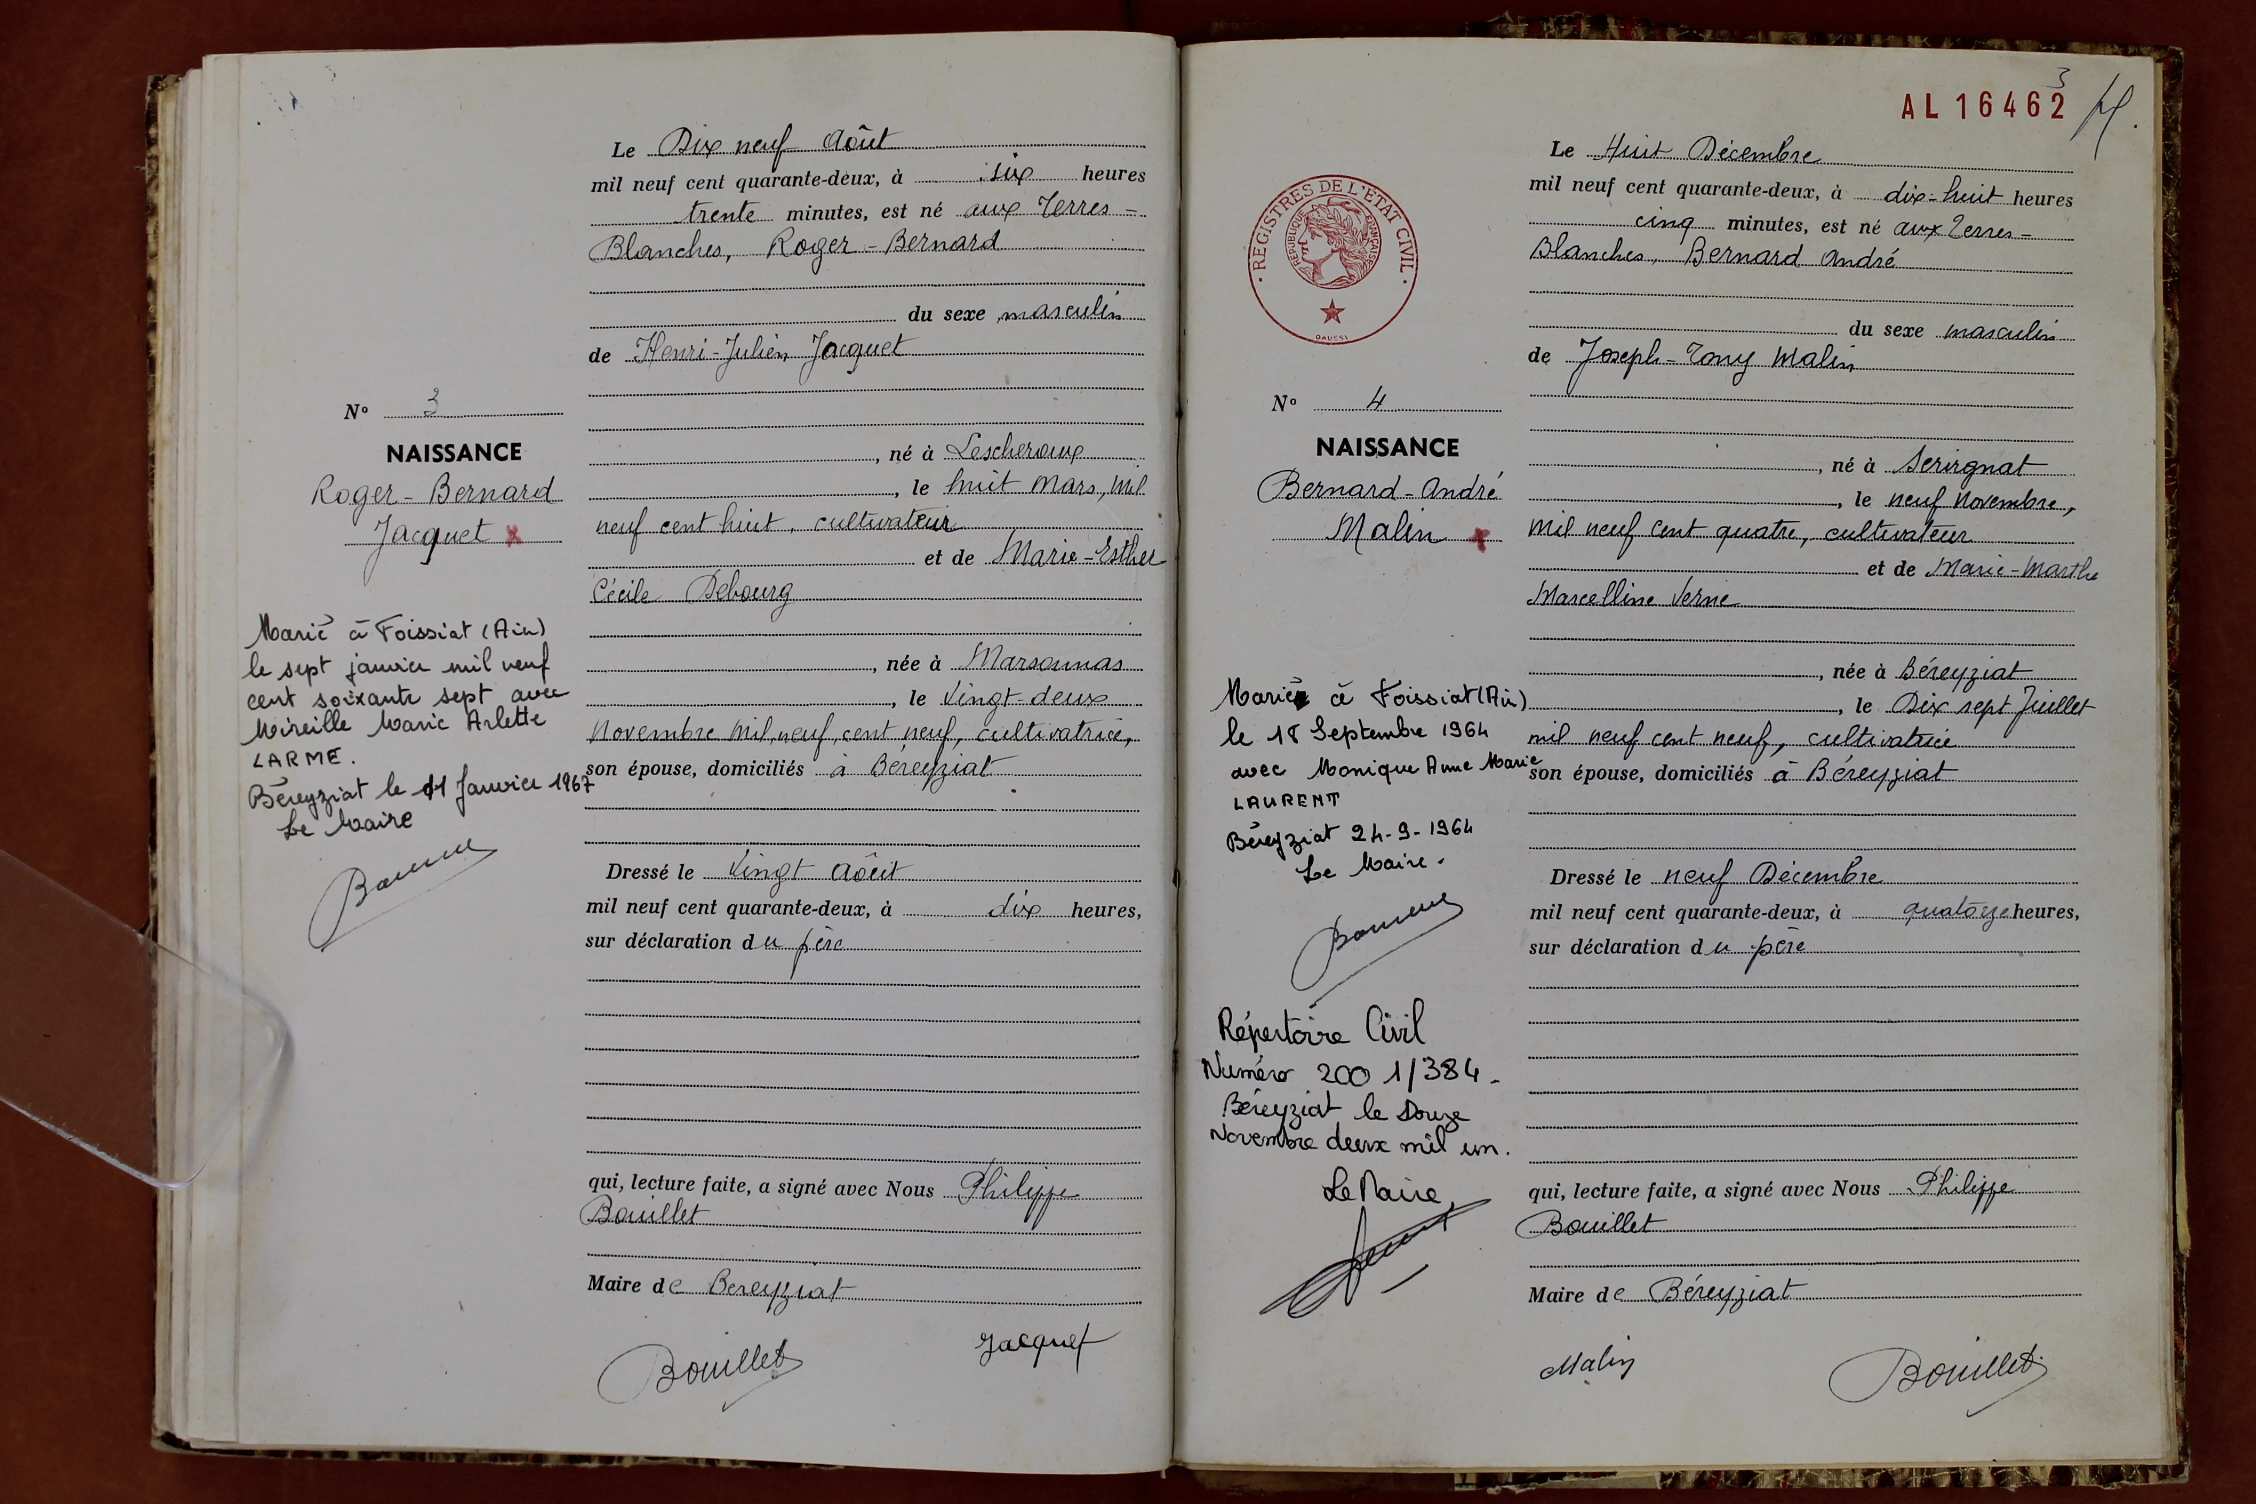 Le Dix neuf Août
mil neuf cent quarante-deux, à six heures
trente minutes, est né aux Terres-
Blanches, Roger-Bernard
du sexe masculin
de Henri-Julien Jacquet
né à Lescheroux
, le huit Mars, mil
neuf cent huit, cultivateur
et de Marie-Esther
Cécile Debourg
, née à Marsonnas
, le Vingt-deux
Novembre mil neuf cent neuf, cultivatrice,
son épouse, domiciliés à Béreyziat
Dressé le Vingt Août
mil neuf cent quarante-deux, à dix heures,
sur déclaration du père
qui, lecture faite, a signé avec Nous Philippe
Bouillet
Maire de Bereyziat
Bouillet
Jacquet
No 3
NAISSANCE
Roger-Bernard
Jacquet x
Marié à Foissiat (Ain)
le sept janvier mil neuf
cent soixante sept avec
Mireille Marie Arlette
LARME.
Béreyziat le 11 Janvier 1967
Le Maire
AL 16462
3
REGISTRES DE L'ETAT CIVIL
REPUBLIQUE FRANÇAISE
DAUSSI
Le Huit Décembre
mil neuf cent quarante-deux, à dix-huit heures
cinq minutes, est né aux Terres-
Blanches, Bernard André
du sexe masculin
de Joseph-Tony Malin
, né à Servignat
, le neuf Novembre,
mil neuf cent quatre, cultivateur
et de Marie-Marthe
Marcelline Verne
, née à Béreyziat
, le Dix sept Juillet
mil neuf cent neuf, cultivatrice
son épouse, domiciliés à Béreyziat
Dressé le neuf Décembre
mil neuf cent quarante-deux, à quatorze heures,
sur déclaration du père
qui, lecture faite, a signé avec Nous Philippe
Bouillet
Maire de Béreyziat
Malin
Bouillet
No 4
NAISSANCE
Bernard-André
Malin x
Marié à Foissiat (Ain)
le 18 Septembre 1964
avec Monique Anne Marie
LAURENT
Béreyziat 24-9-1964
Le Maire.
Répertoire Civil
Numéro 2001/384.
Béreyziat le Douze
Novembre deux mil un.
Le Maire,